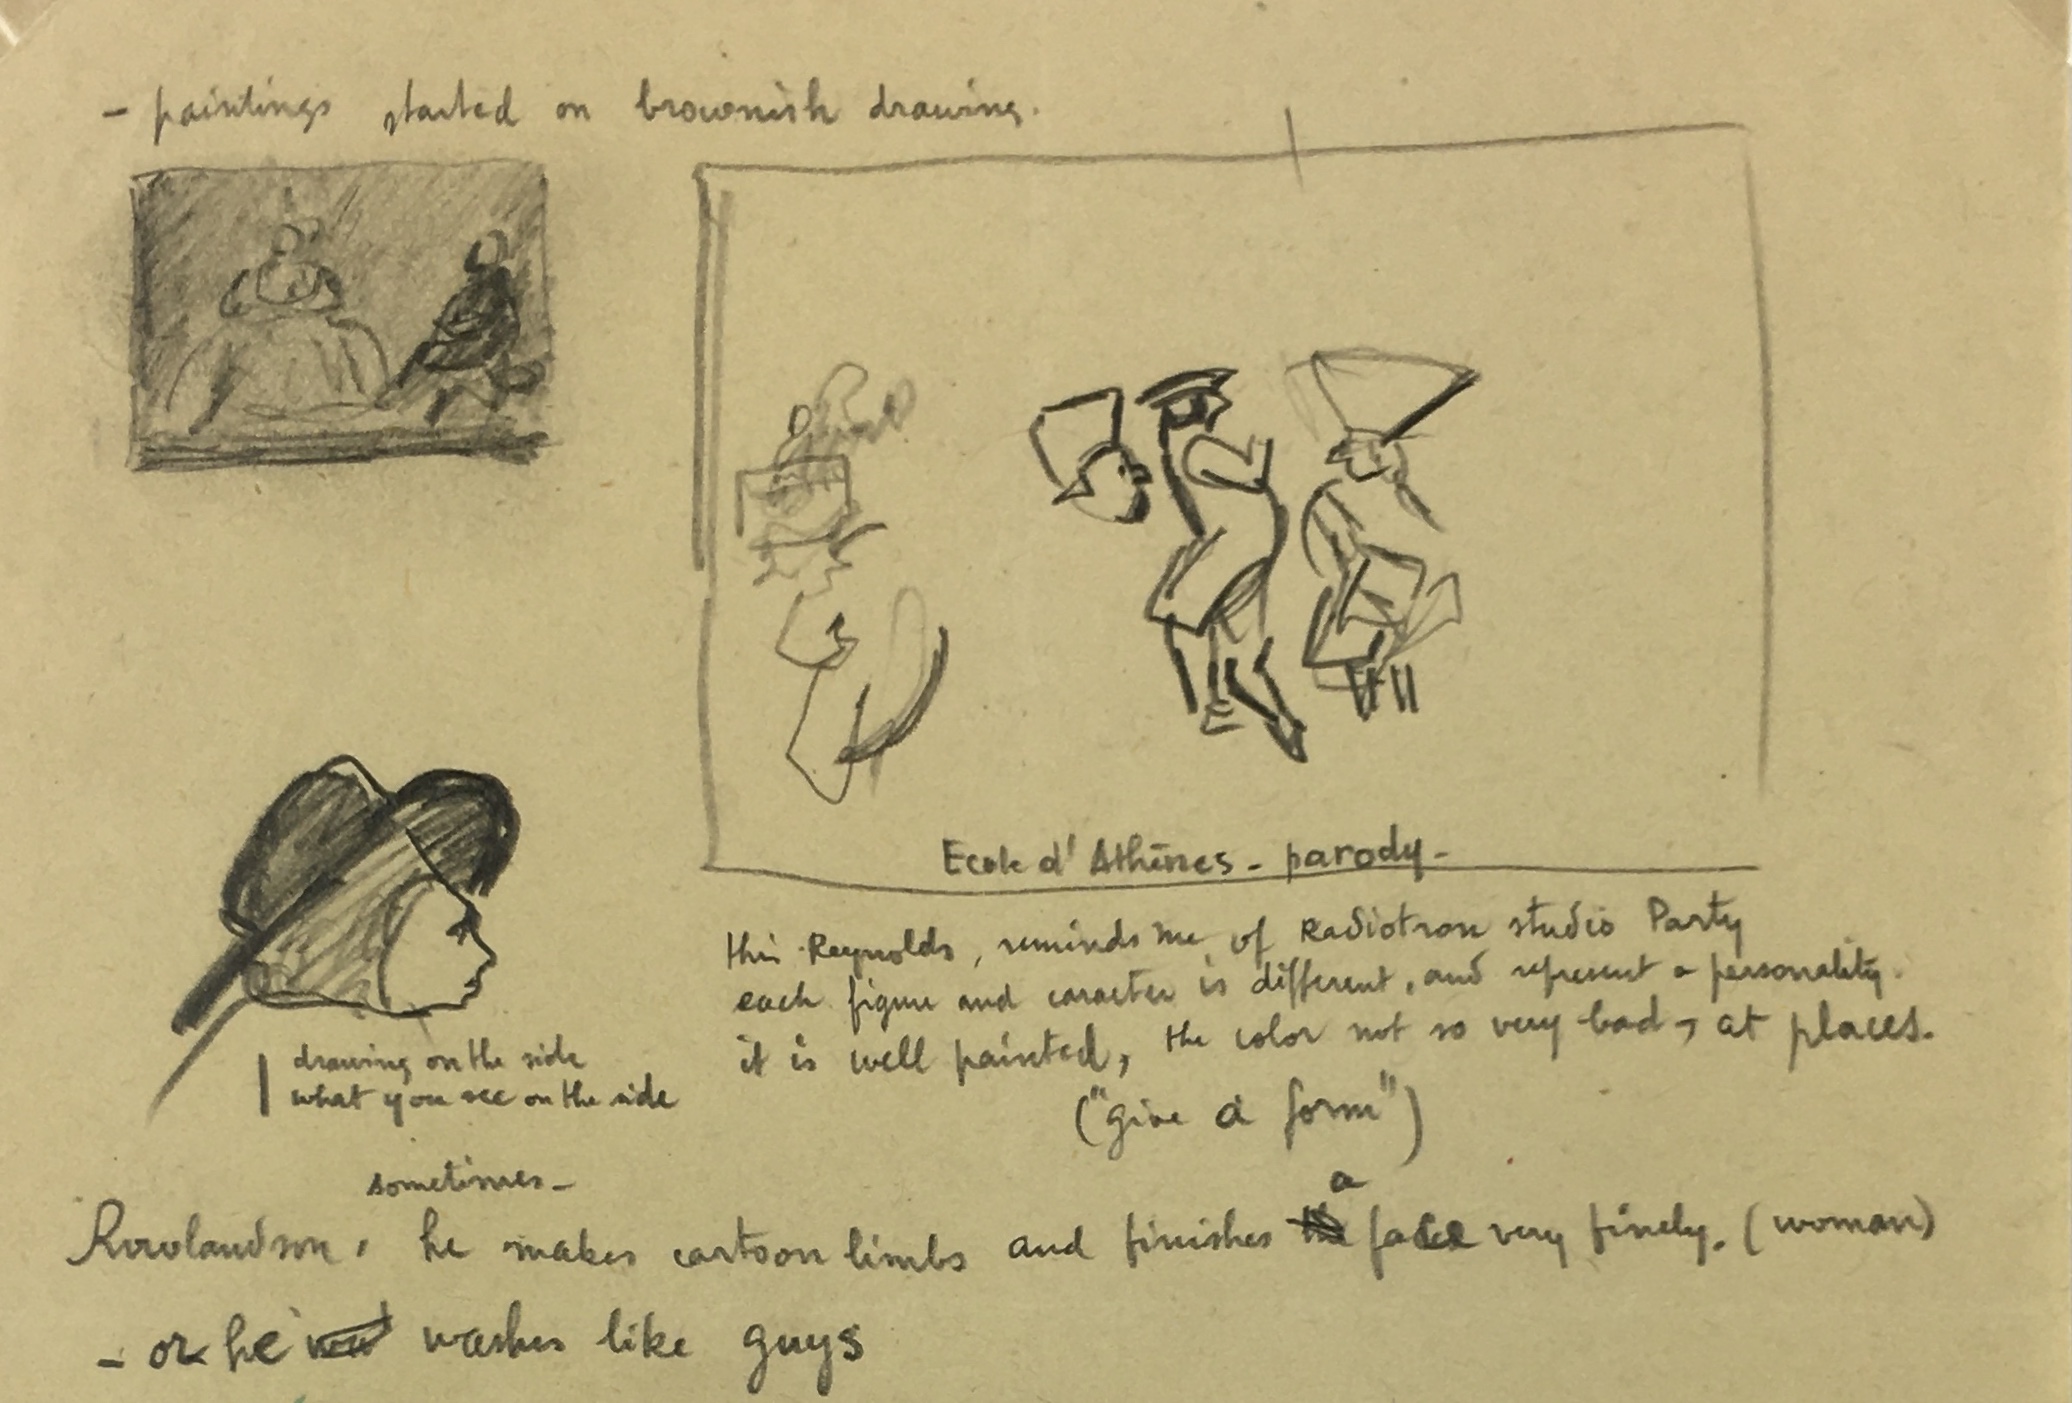 - paintings started on brownish drawing.
Ecole d'Athènes - parody -
this Reynolds, reminds me of Radiotron studio Party
each figure and caracter is different, and represent a personality.
it is well painted, the color not so very bad, at places.
("give a form")
drawing on the side
what you see on the side
sometimes -
a
Rowlandson, he makes cartoon limbs and finishes face very finely. (woman)
- or he washes like guys